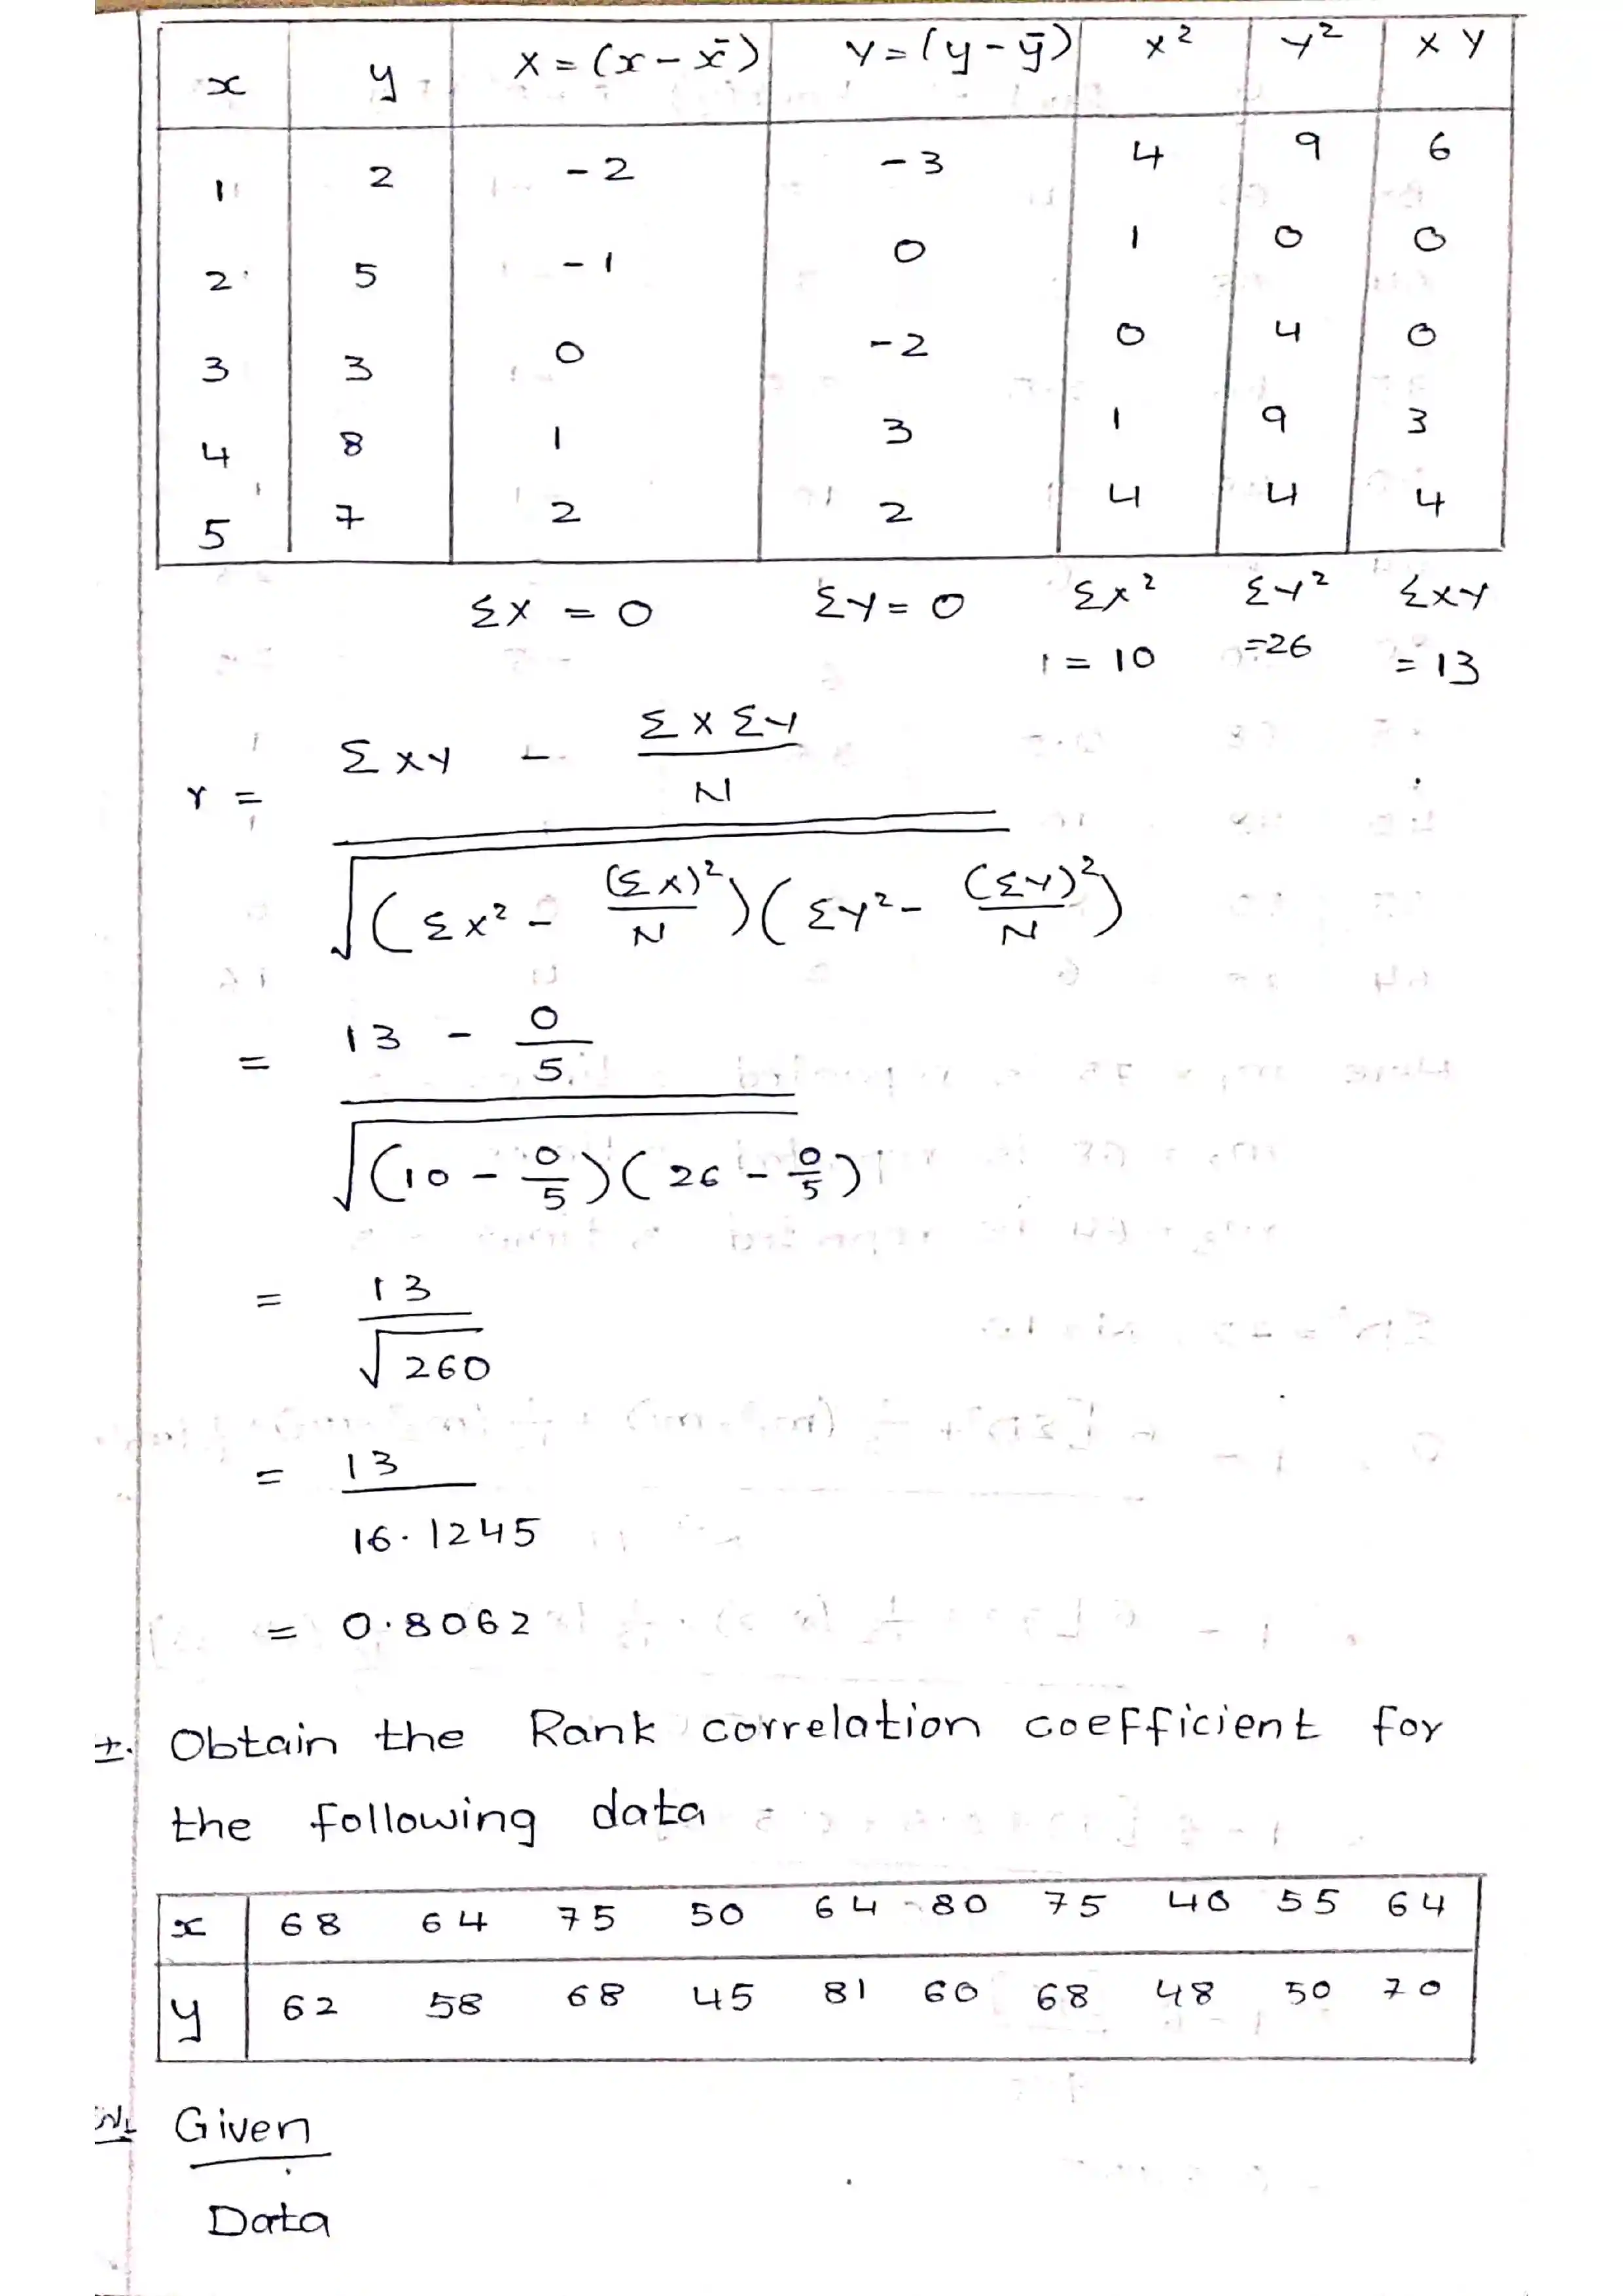 x y X = (x - x̄) Y = (y - ȳ) X² Y² X Y
1 2 - 2 - 3 4 9 6
2 5 - 1 0 1 0 0
3 3 0 - 2 0 4 0
4 8 1 3 1 9 3
5 7 2 2 4 4 4
ΣX = 0 ΣY = 0 ΣX² = 10 ΣY² = 26 ΣXY = 13
r = (ΣXY - ΣXΣY/N) / √((ΣX² - (ΣX)²/N)(ΣY² - (ΣY)²/N))
= (13 - 0/5) / √((10 - 0/5)(26 - 0/5))
= 13 / √260
= 13 / 16.1245
= 0.8062
Obtain the Rank correlation coefficient for
the following data
x 68 64 75 50 64 80 75 40 55 64
y 62 58 68 45 81 60 68 48 50 70
Given
Data